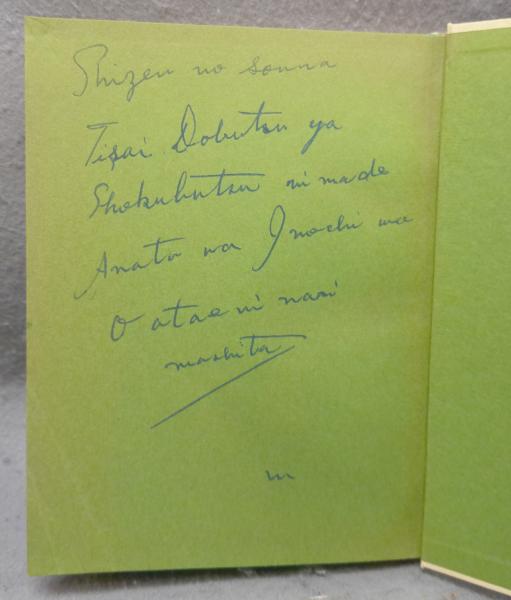 Shizen no sonna
Tisai Dobutsu ya
Shokubutsu ni made
Anata wa Inochi wo
O atae ni nari
mashita
m